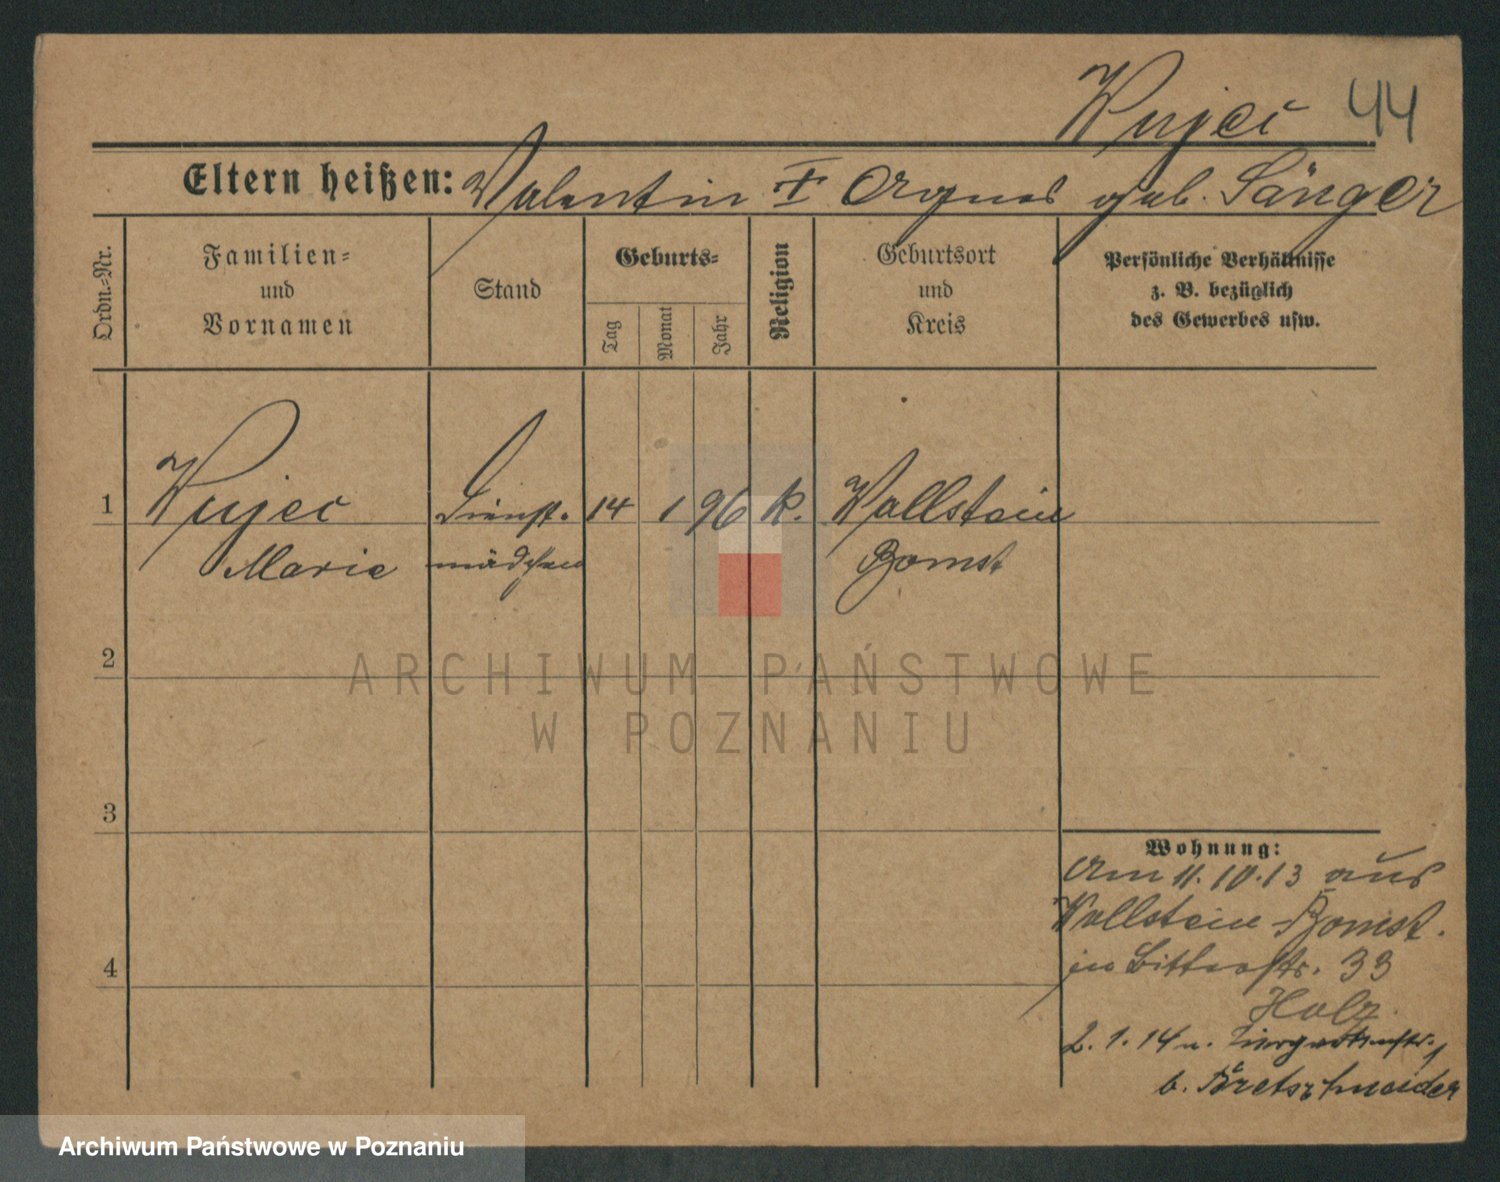 Wujec 44
Eltern heißen: Valentin † Agnes geb. Sänger
Ordn.-Nr.
Familien-
und
Vornamen
Stand
Geburts-
Tag
Monat
Jahr
Religion
Geburtsort
und
Kreis
Persönliche Verhältnisse
z. B. bezüglich
des Gewerbes usw.
1 Wujec Dienst- 14 1 96 k. Wollstein
Marie mädchen Bomst
2
3
4
Wohnung:
Am 11.10.13 aus
Wollstein-Bomst.
in Bitterstr. 33
Holz.
2.1.14 n.
b. Bretschneider
ARCHIWUM PAŃSTWOWE
W POZNANIU
Archiwum Państwowe w Poznaniu